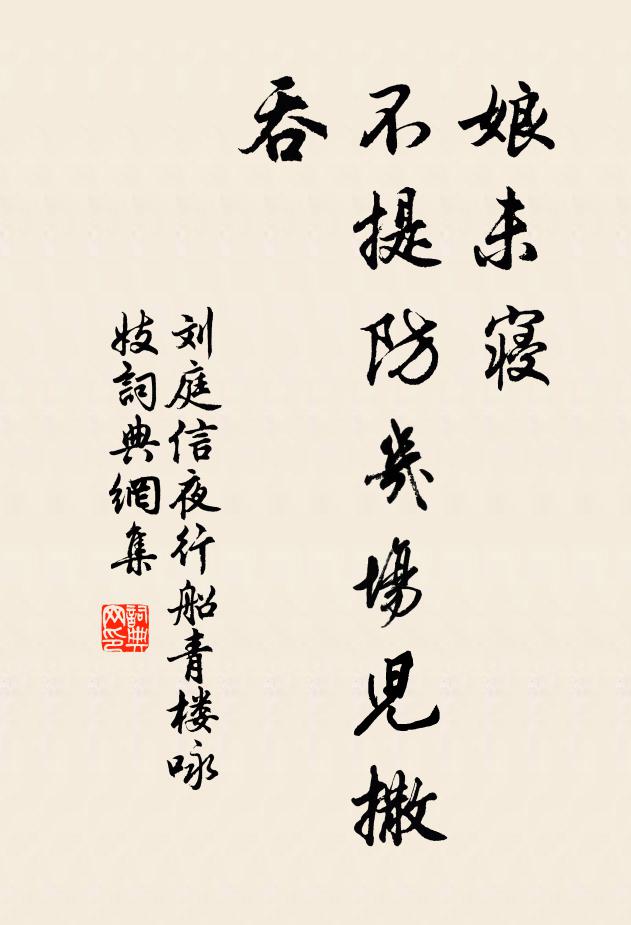 娘未寝
不提防幾場兒撒
吞
刘庭信夜行船青楼咏
妓詞典網集
詞典
网印